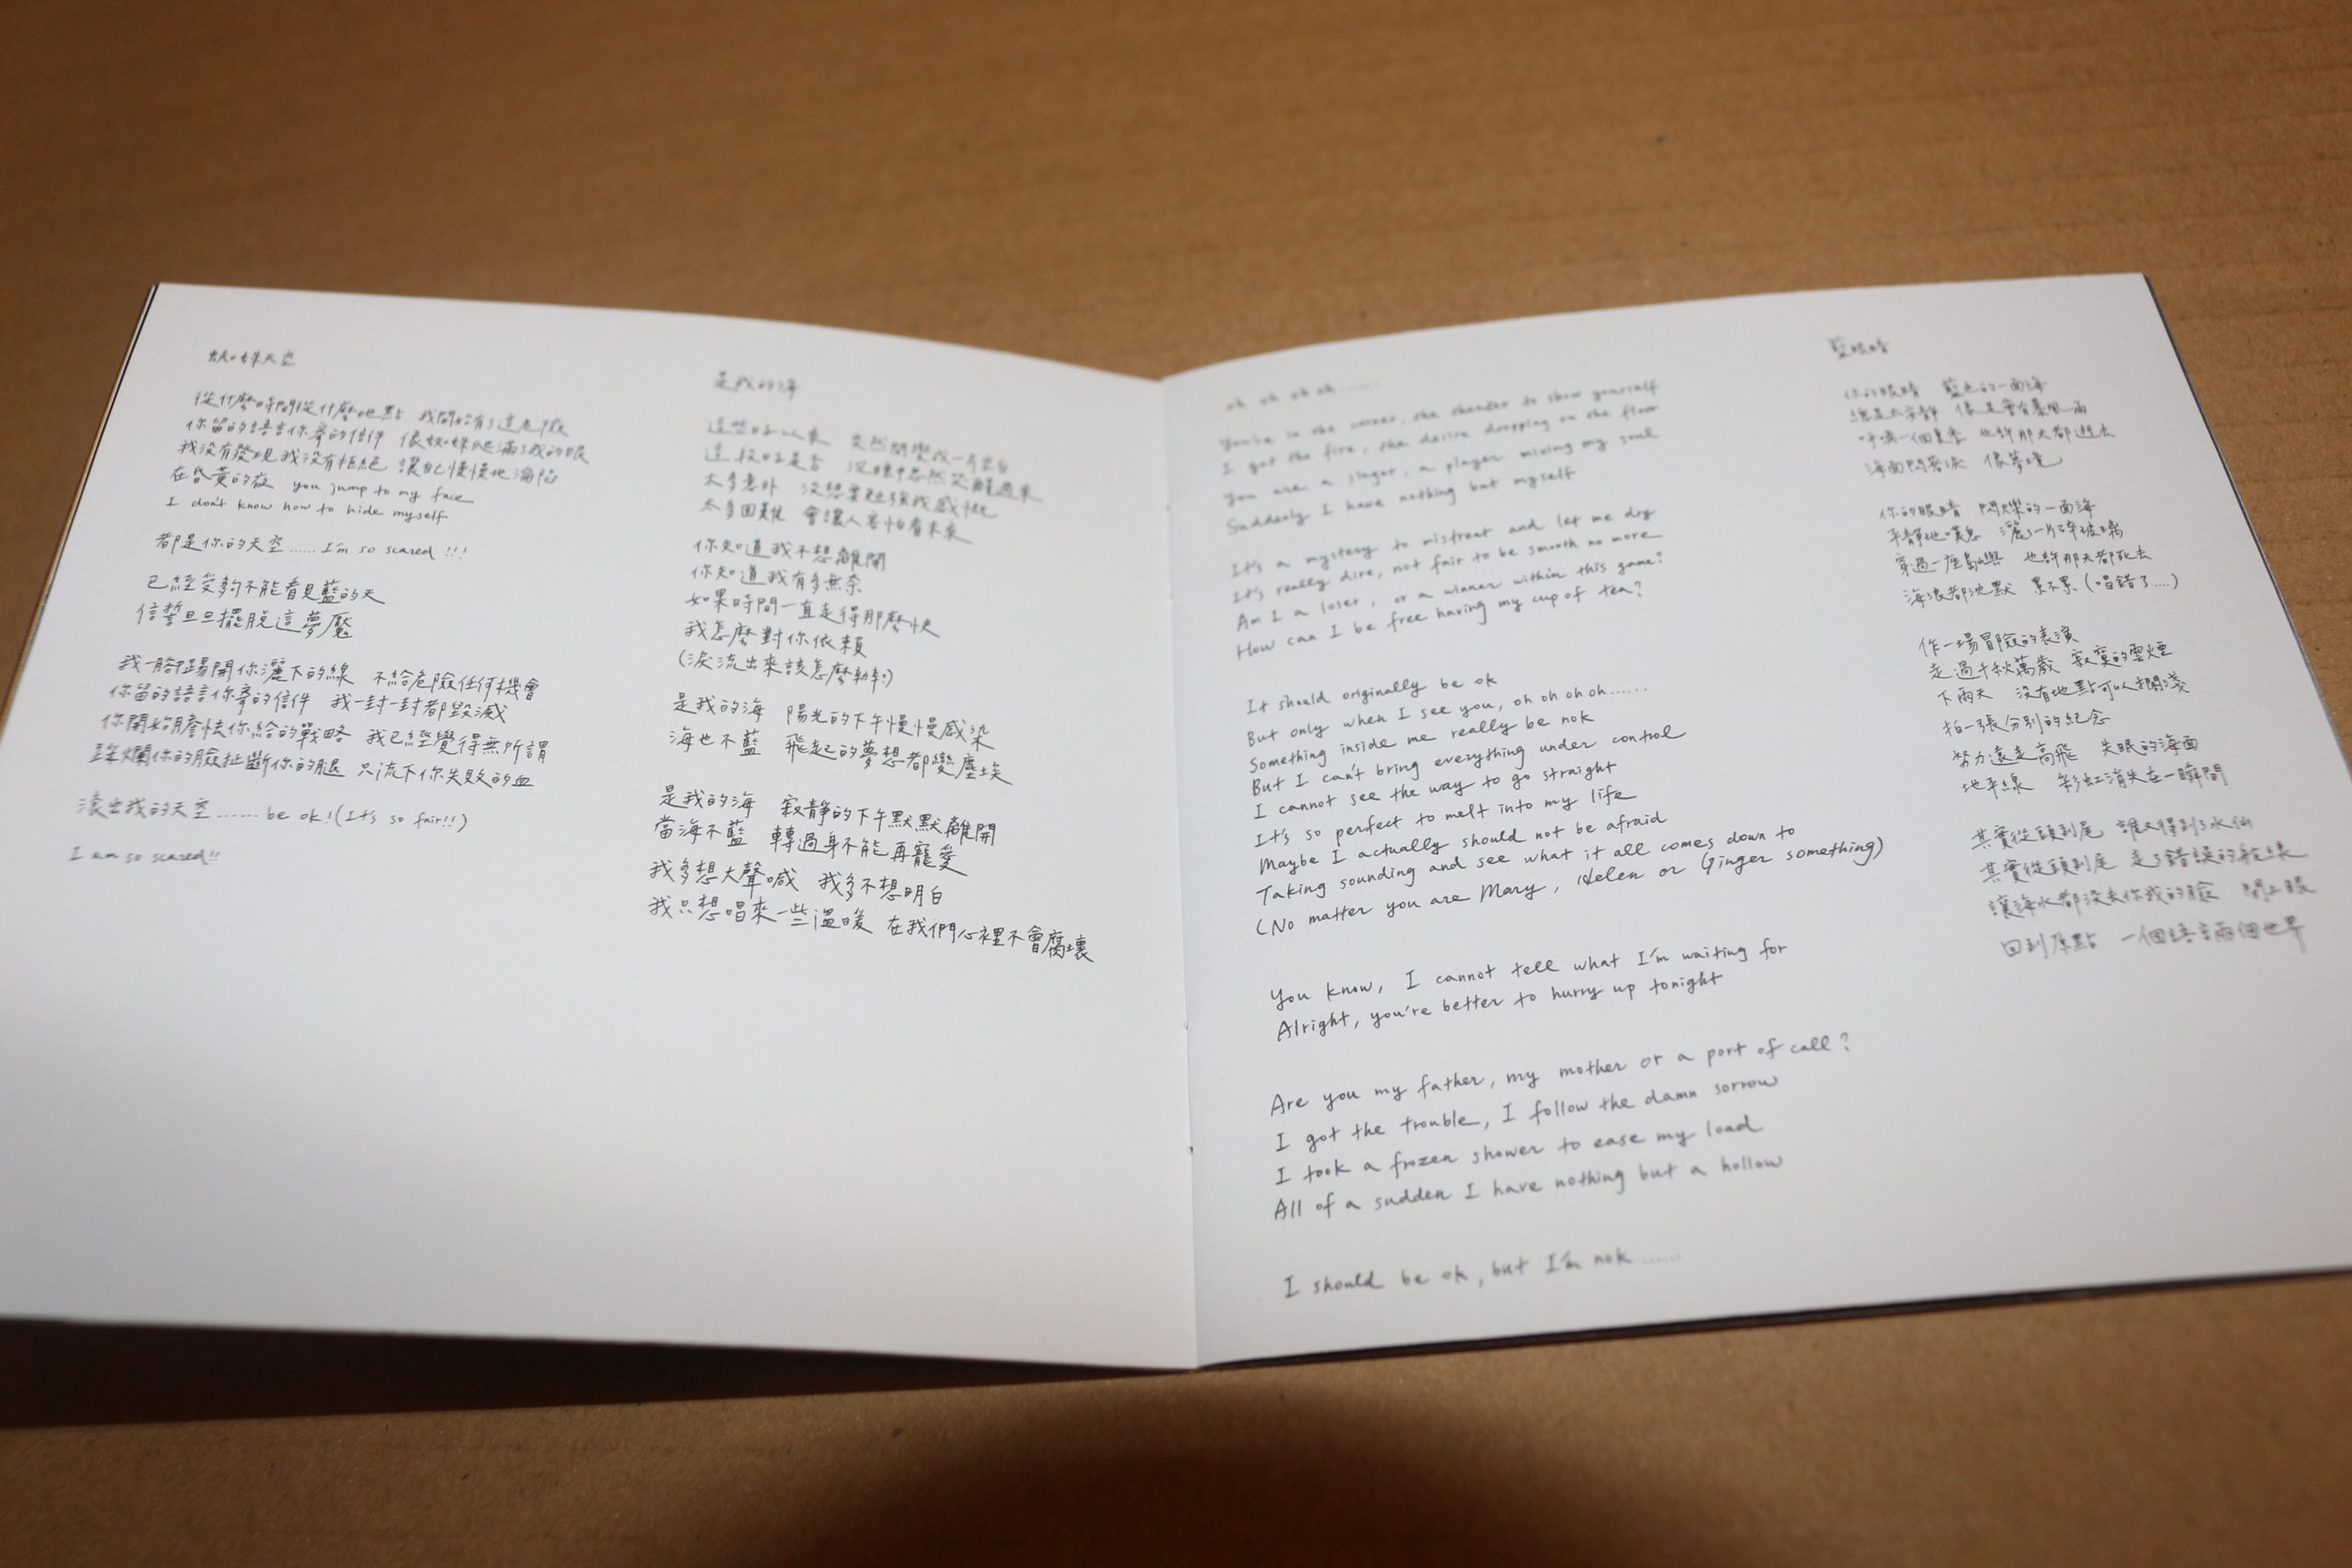 蜘蛛天空
從什麼時間從什麼地點 我開始有了這危險
你留的語言你寄的信件 像蜘蛛爬滿了我的眼
我沒有發現我沒有拒絕 讓自己慢慢地淪陷
在昏黃的夜 you jump to my face
I don't know how to hide myself
都是你的天空...... I'm so scared!!!
已經受夠不能看見藍的天
信誓旦旦擺脫這夢魘
我一腳踢開你灑下的線 不給危險任何機會
你留的語言你寄的信件 我一封一封都毀滅
你開始膽怯你給的戰略 我已經覺得無所謂
踩爛你的臉扯斷你的腿 只流下你失敗的血
滾出我的天空...... be ok! (It's so fair!!)
I am so scared!!
是我的海
這些日子以來 突然間變成一片空白
這段日子是否 沒睡中忽然又醒過來
太多意外 沒想要勉強我感慨
太多困難 會讓人害怕看未來
你知道我不想離開
你知道我有多無奈
如果時間一直走得那麼快
我怎麼對你依賴
(淚流出來該怎麼辦?)
是我的海 陽光的下午慢慢感染
海也不藍 飛起的夢想都變塵埃
是我的海 寂靜的下午默默離開
當海不藍 轉過身不能再寵愛
我多想大聲喊 我多不想明白
我只想唱來一些溫暖 在我們心裡不會腐壞
oh oh oh oh......
You're in the corner, the shoulder to show yourself
I got the fire, the desire dropping on the floor
You are a singer, a player mixing my soul
Suddenly I have nothing but myself
It's a mystery to mistreat and let me dry
It's really dire, not fair to be smooth no more
Am I a loser, or a winner within this game?
How can I be free having my cup of tea?
It should originally be ok
But only when I see you, oh oh oh oh......
Something inside me really be nok
But I can't bring everything under control
I cannot see the way to go straight
It's so perfect to melt into my life
Maybe I actually should not be afraid
Taking sounding and see what it all comes down to
(No matter you are Mary, Helen or Ginger something)
You know, I cannot tell what I'm waiting for
Alright, you're better to hurry up tonight
Are you my father, my mother or a port of call?
I got the trouble, I follow the damn sorrow
I took a frozen shower to ease my load
All of a sudden I have nothing but a hollow
I should be ok, but I'm nok......
藍眼睛
你的眼睛 藍色的一面海
總是太安靜 像是會有暴風雨
呼喚一個夏季 也許那天都逝去
海面閃著淚 像夢境
你的眼睛 閃爍的一面海
平靜地嘆息 灑了一片碎玻璃
穿過一座島嶼 也許那天都死去
海浪都沈默 累不累 (唱錯了....)
作一場冒險的表演
走過千秋萬歲 寂寞的雲煙
下雨天 沒有地點可以擱淺
拍一張分別的紀念
努力遠走高飛 失眠的海面
地平線 彩虹消失在一瞬間
其實從頭到尾 誰又得到了永恆
其實從頭到尾 走了錯誤的航線
讓海水都沒去你我的臉 閉上眼
回到原點 一個語言兩個世界